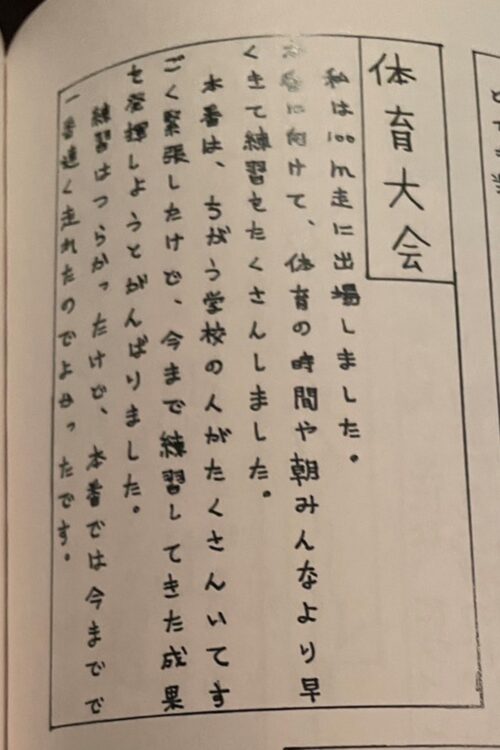 体育大会
私は100m走に出場しました。
本番に向けて、体育の時間や朝みんなより早
くきて練習をたくさんしました。
本番は、ちがう学校の人がたくさんいてす
ごく緊張したけど、今まで練習してきた成果
を発揮しようとがんばりました。
練習はつらかったけど、本番では今までで
一番速く走れたのでよかったです。